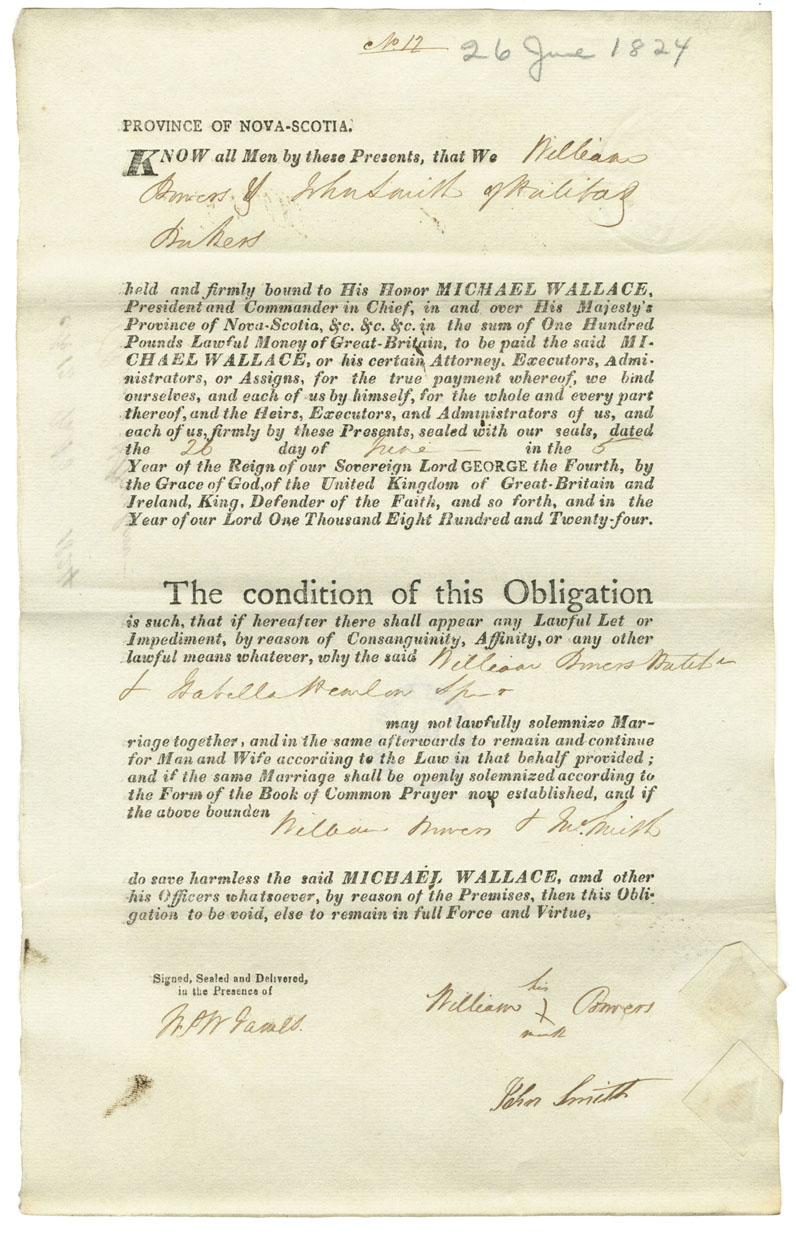 No. 12 26 June 1824
PROVINCE OF NOVA-SCOTIA.
KNOW all Men by these Presents, that We William
Bowers & John Smith of Halifax
Bakers
held and firmly bound to His Honor MICHAEL WALLACE,
President and Commander in Chief, in and over His Majesty's
Province of Nova-Scotia, &c. &c. &c. in the sum of One Hundred
Pounds Lawful Money of Great-Britain, to be paid the said MI-
CHAEL WALLACE, or his certain Attorney. Executors, Admi-
nistrators, or Assigns, for the true payment whereof, we bind
ourselves, and each of us by himself, for the whole and every part
thereof, and the Heirs, Executors, and Administrators of us, and
each of us, firmly by these Presents, sealed with our seals, dated
the 26 day of June in the 5
Year of the Reign of our Sovereign Lord GEORGE the Fourth, by
the Grace of God, of the United Kingdom of Great-Britain and
Ireland, King, Defender of the Faith, and so forth, and in the
Year of our Lord One Thousand Eight Hundred and Twenty-four.
The condition of this Obligation
is such, that if hereafter there shall appear any Lawful Let or
Impediment, by reason of Consanguinity, Affinity, or any other
lawful means whatever, why the said William Bowers
& Isabella
may not lawfully solemnize Mar-
riage together, and in the same afterwards to remain and continue
for Man and Wife according to the Law in that behalf provided;
and if the same Marriage shall be openly solemnized according to
the Form of the Book of Common Prayer now established, and if
the above bounden William Bowers & Jno. Smith
do save harmless the said MICHAEL WALLACE, amd other
his Officers whatsoever, by reason of the Premises, then this Obli-
gation to be void, else to remain in full Force and Virtue,
Signed, Sealed and Delivered,
in the Presence of
his
William X Bowers
mark
John Smith